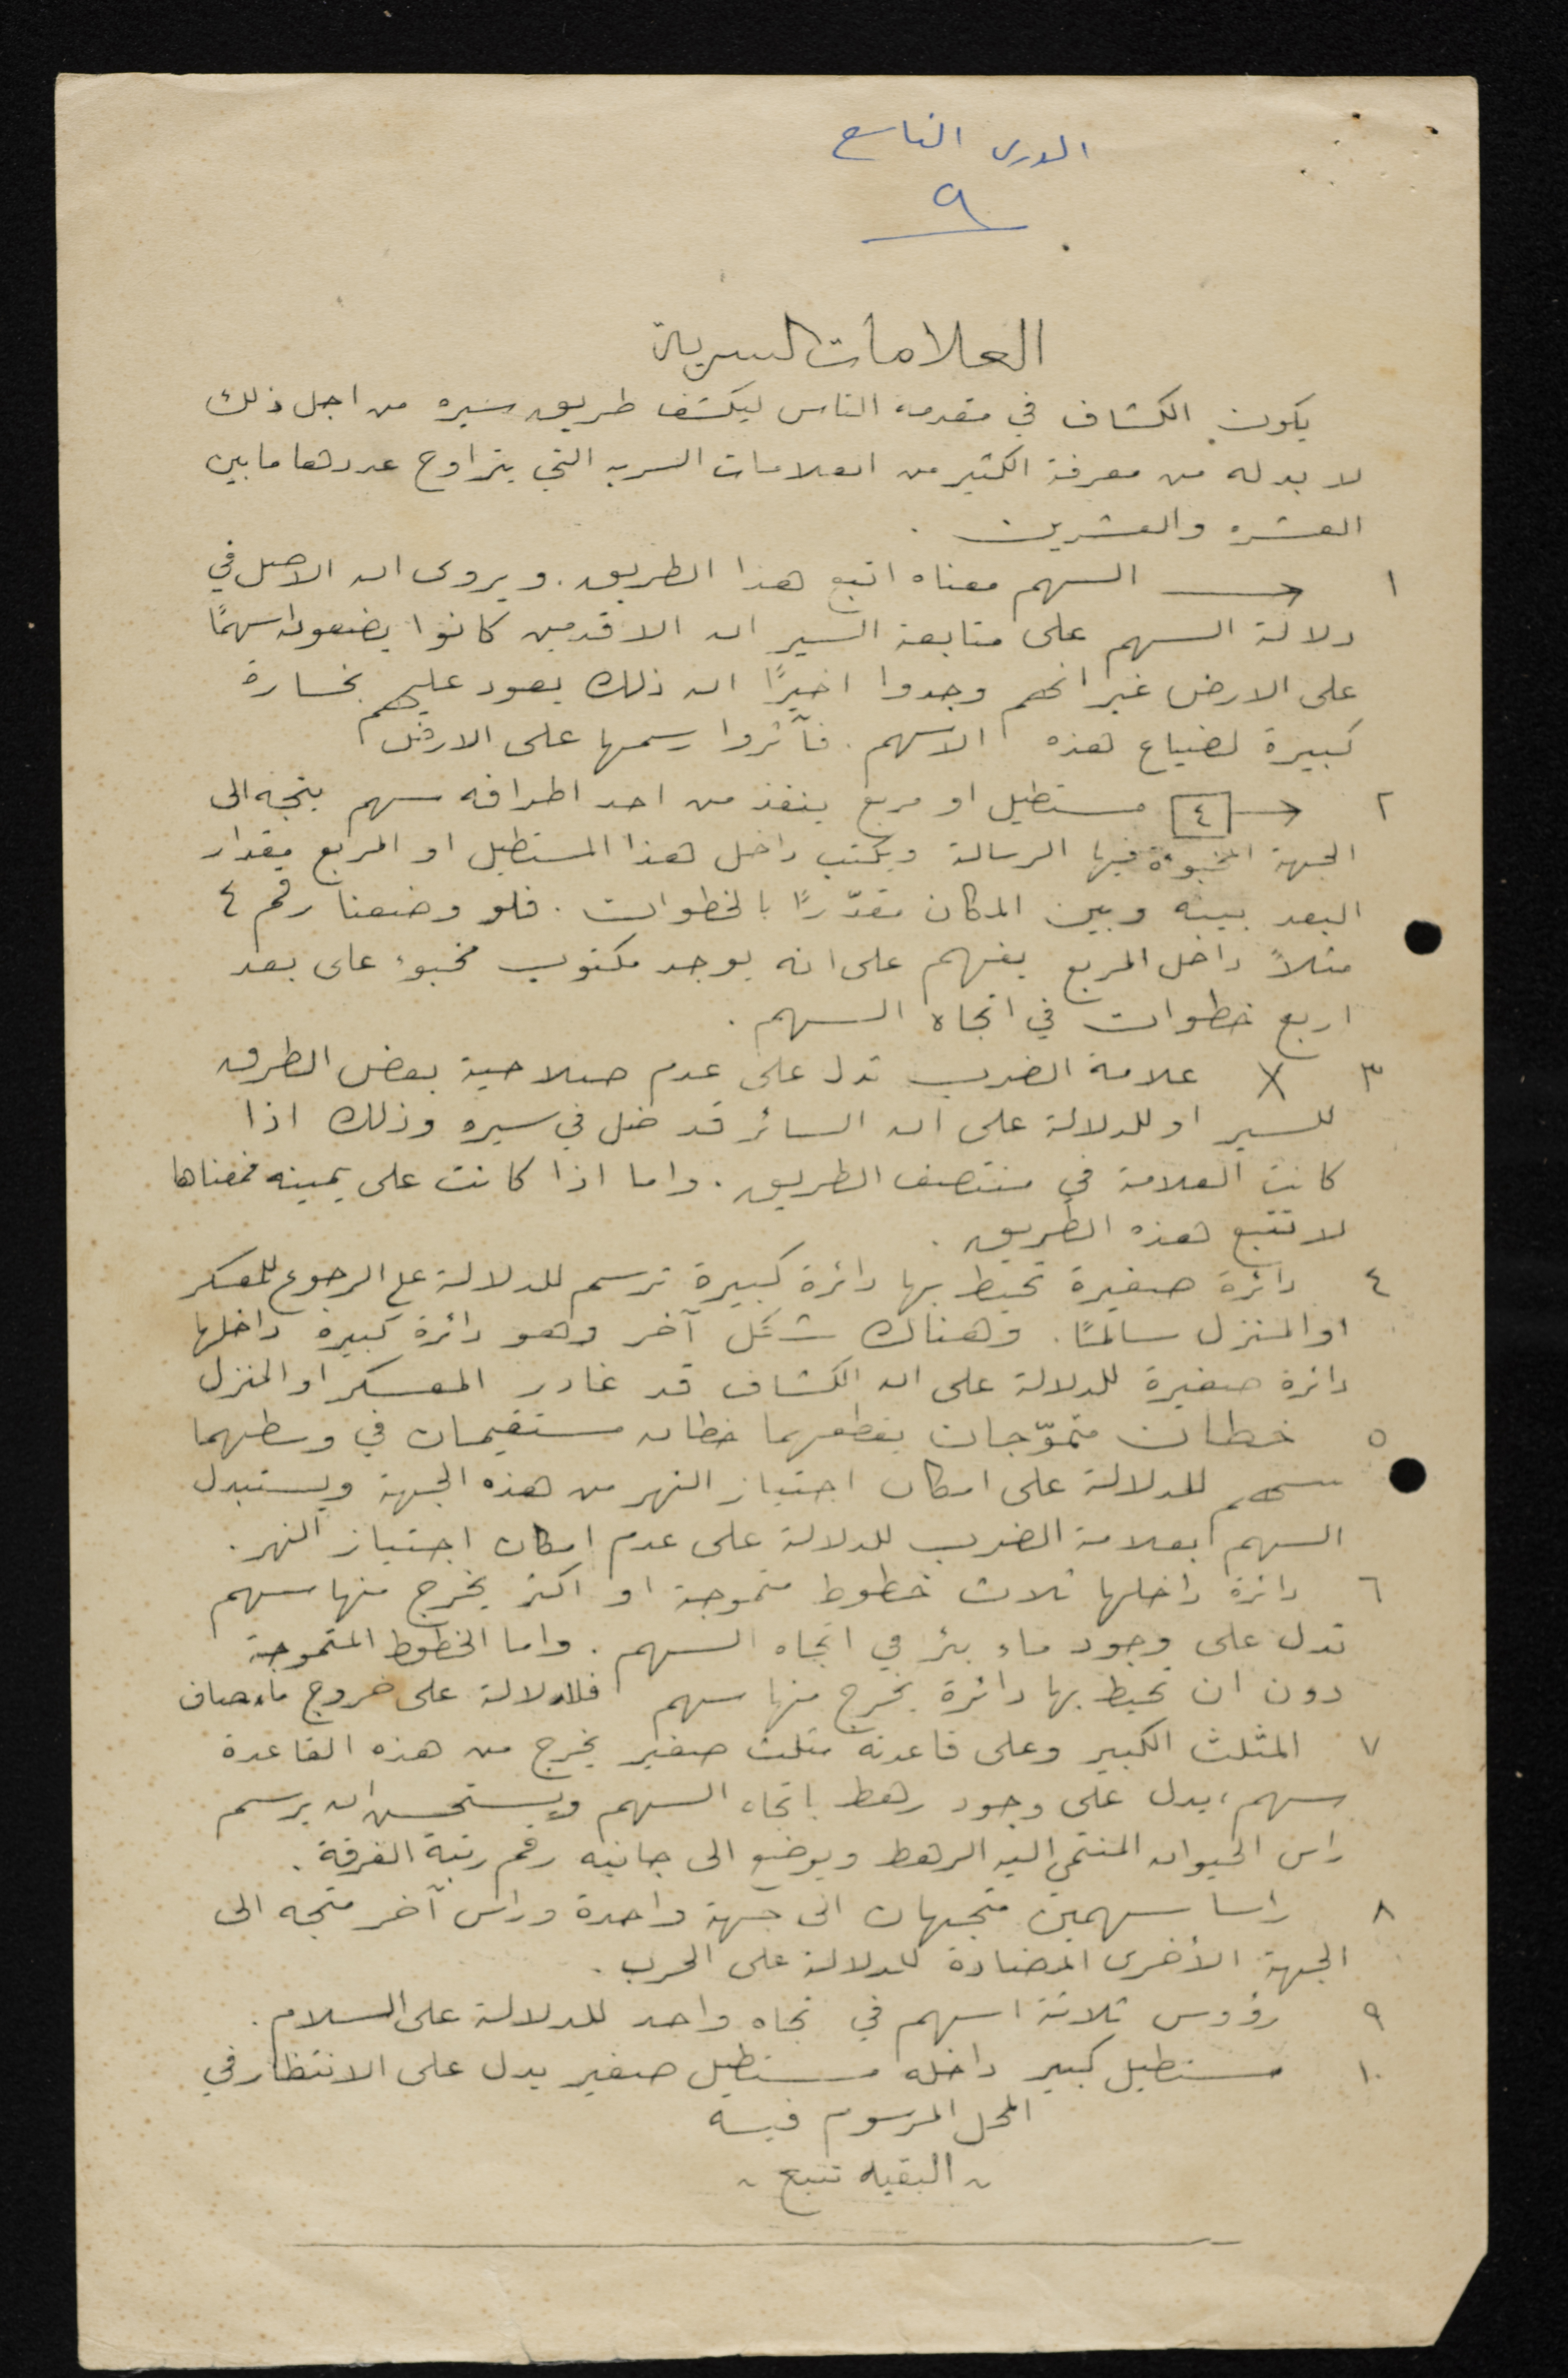 الدرس التاسع
٩
العلامات السرية
يكون الكشاف في مقدمة الناس ليكشف طريق سيره من اجل ذلك
لا بد له من معرفة الكثير من العلامات السريه التي يتراوح عددها ما بين
العشره والعشرين .
١ → السهم معناه اتبع هذا الطريق . ويروى ان الاصل في
دلالة السهم على متابعة السير ان الاقدمين كانوا يضعون سهمًا
على الارض غير انهم وجدوا اخيرًا ان ذلك يعود عليهم بخسارة
كبيرة لضياع هذه الاسهم . فآثروا رسمها على الارض
٢ ٤ → مستطيل او مربع ينفذ من احد اطرافه سهم يتجه الى
الجهة المخبوءة فيها الرسالة ويكتب داخل هذا المستطيل او المربع مقدار
البعد بينه وبين المكان مقدّرًا بالخطوات . فلو وضعنا رقم ٤
مثلاً داخل المربع يفهم على انه يوجد مكتوب مخبوء على بعد
اربع خطوات في اتجاه السهم .
٣ X علامة الضرب تدل على عدم صلاحية بعض الطرق
للسير او للدلالة على ان السائر قد ضل في سيره وذلك اذا
كانت العلامة في منتصف الطريق . واما اذا كانت على يمينه فمعناها
لا تتبع هذه الطريق .
٤ دائرة صغيرة تحيط بها دائرة كبيرة ترسم للدلالة على الرجوع للمعسكر
او المنزل سالمًا . وهناك شكل آخر وهو دائرة كبيرة داخلها
دائرة صغيرة للدلالة على ان الكشاف قد غادر المعسكر او المنزل
٥ خطان متموّجان يقطعهما خطان مستقيمان في وسطهما
سهم للدلالة على امكان اجتياز النهر من هذه الجهة ويستبدل
السهم بعلامة الضرب للدلالة على عدم امكان اجتياز النهر .
٦ دائرة داخلها ثلاث خطوط متموجة او اكثر يخرج منها سهم
تدل على وجود ماء بئر في اتجاه السهم . واما الخطوط المتموجة
دون ان تحيط بها دائرة يخرج منها سهم فللدلالة على خروج ماء صاف
٧ المثلث الكبير وعلى قاعدته مثلث صغير يخرج من هذه القاعدة
سهم، يدل على وجود رهط باتجاه السهم ويستحسن ان يرسم
راس الحيوان المنتمي اليه الرهط ويوضع الى جانبه رقم رتبة الفرقة .
٨ راسا سهمين متجهان الى جهة واحدة وراس آخر متجه الى
الجهة الأخرى المضادة للدلالة على الحرب .
٩ رؤوس ثلاثة اسهم في تجاه واحد للدلالة على السلام .
١٠ مستطيل كبير داخله مستطيل صغير يدل على الانتظار في
المحل المرسوم فيه
~ البقيه تتبع ~